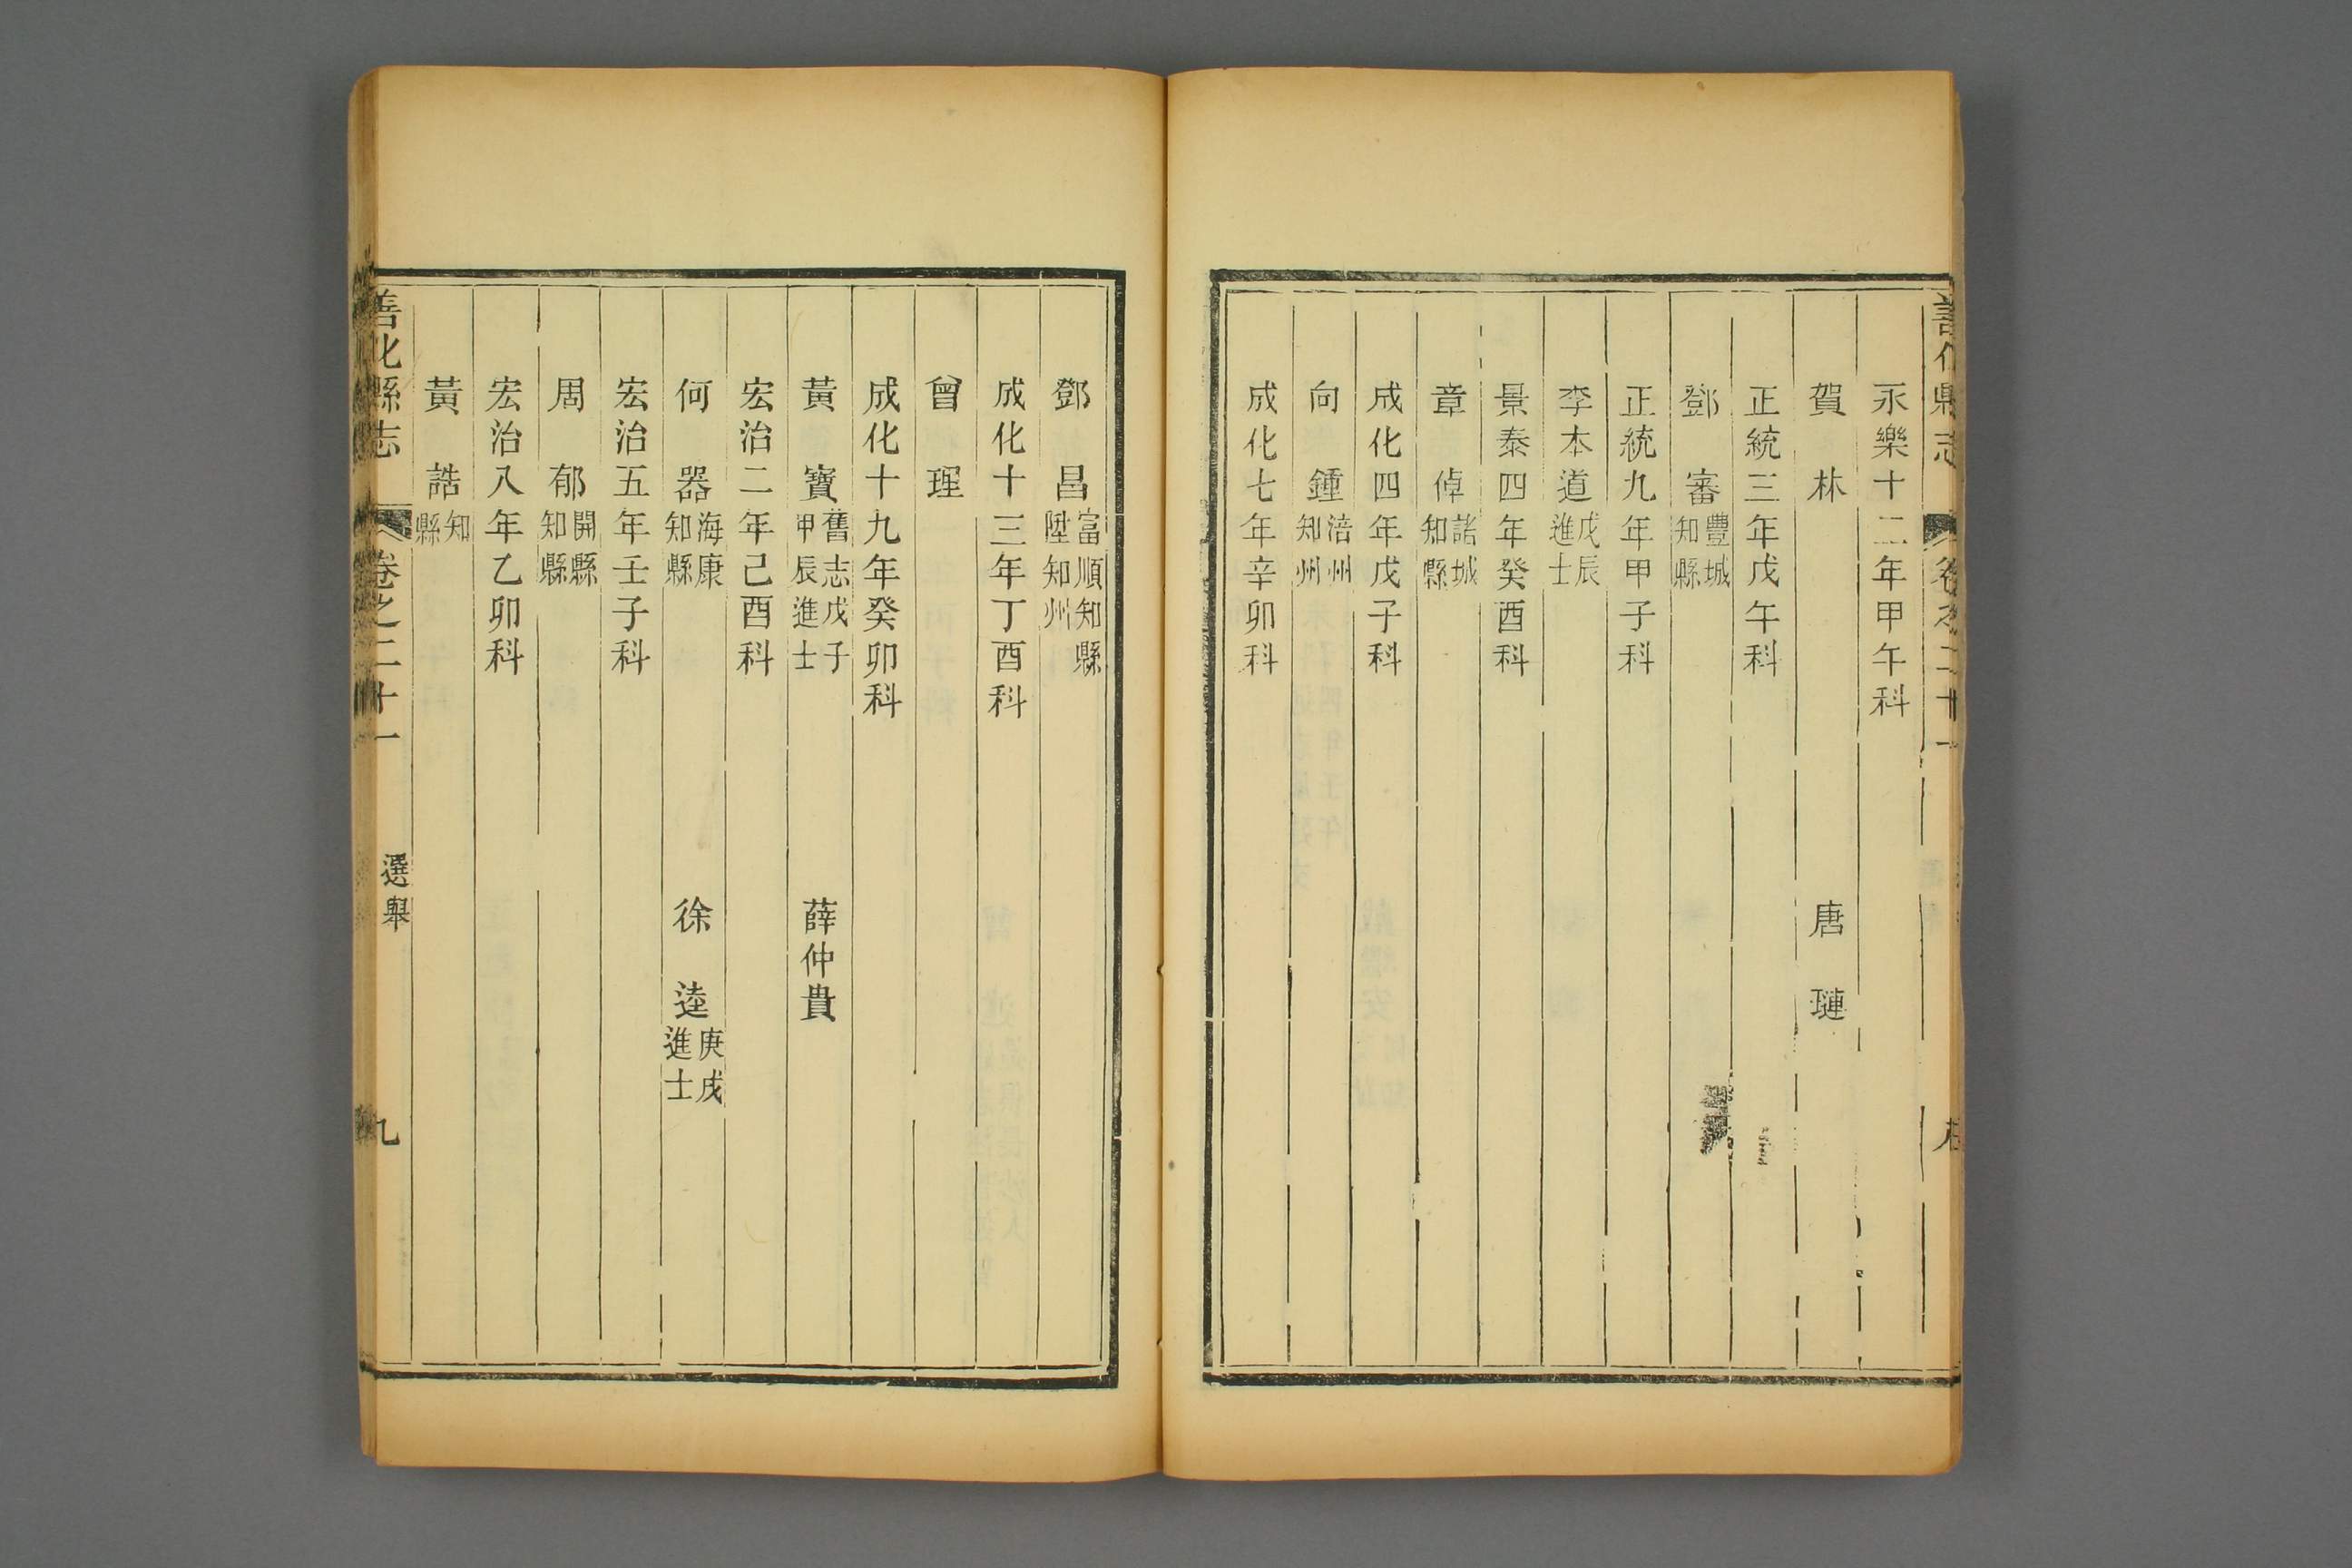 永樂十二年甲午科
賀林 唐璉
正統三年戊午科
鄧審豐城知縣
正統九年甲子科
李本道戊辰進士
景泰四年癸酉科
章倬諸城知縣
成化四年戊子科
向鍾涪州知州
成化七年辛卯科
鄧昌富順知縣陞知州
成化十三年丁酉科
曾理
成化十九年癸卯科
黃寶舊志戊子甲辰進士 薛仲貴
宏治二年己酉科
何器海康知縣 徐逵庚戌進士
宏治五年壬子科
周郁開縣知縣
宏治八年乙卯科
黃誥知縣
善化縣志 卷之二十一 選舉 九